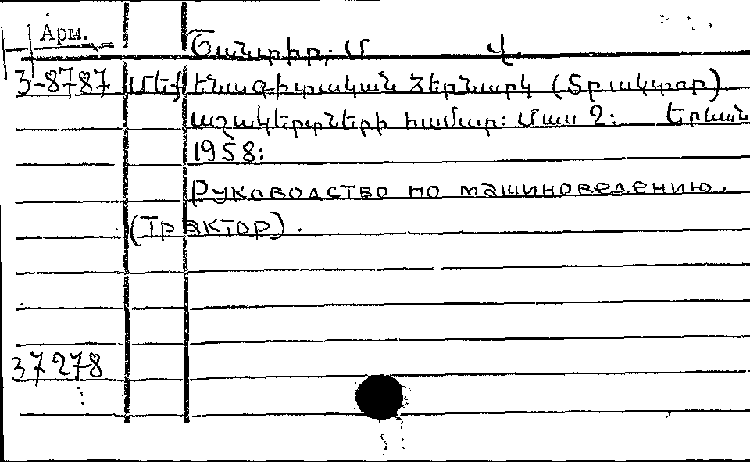 Арм.
Շանտիր, Մ Վ.
3-8787 Մեքենագիտական ձեռնարկ (Տրակտոր)
աշակերտների համար։ Մաս 2։ Երևան
1958։
Руководство по машиноведению.
(Трактор).
37278